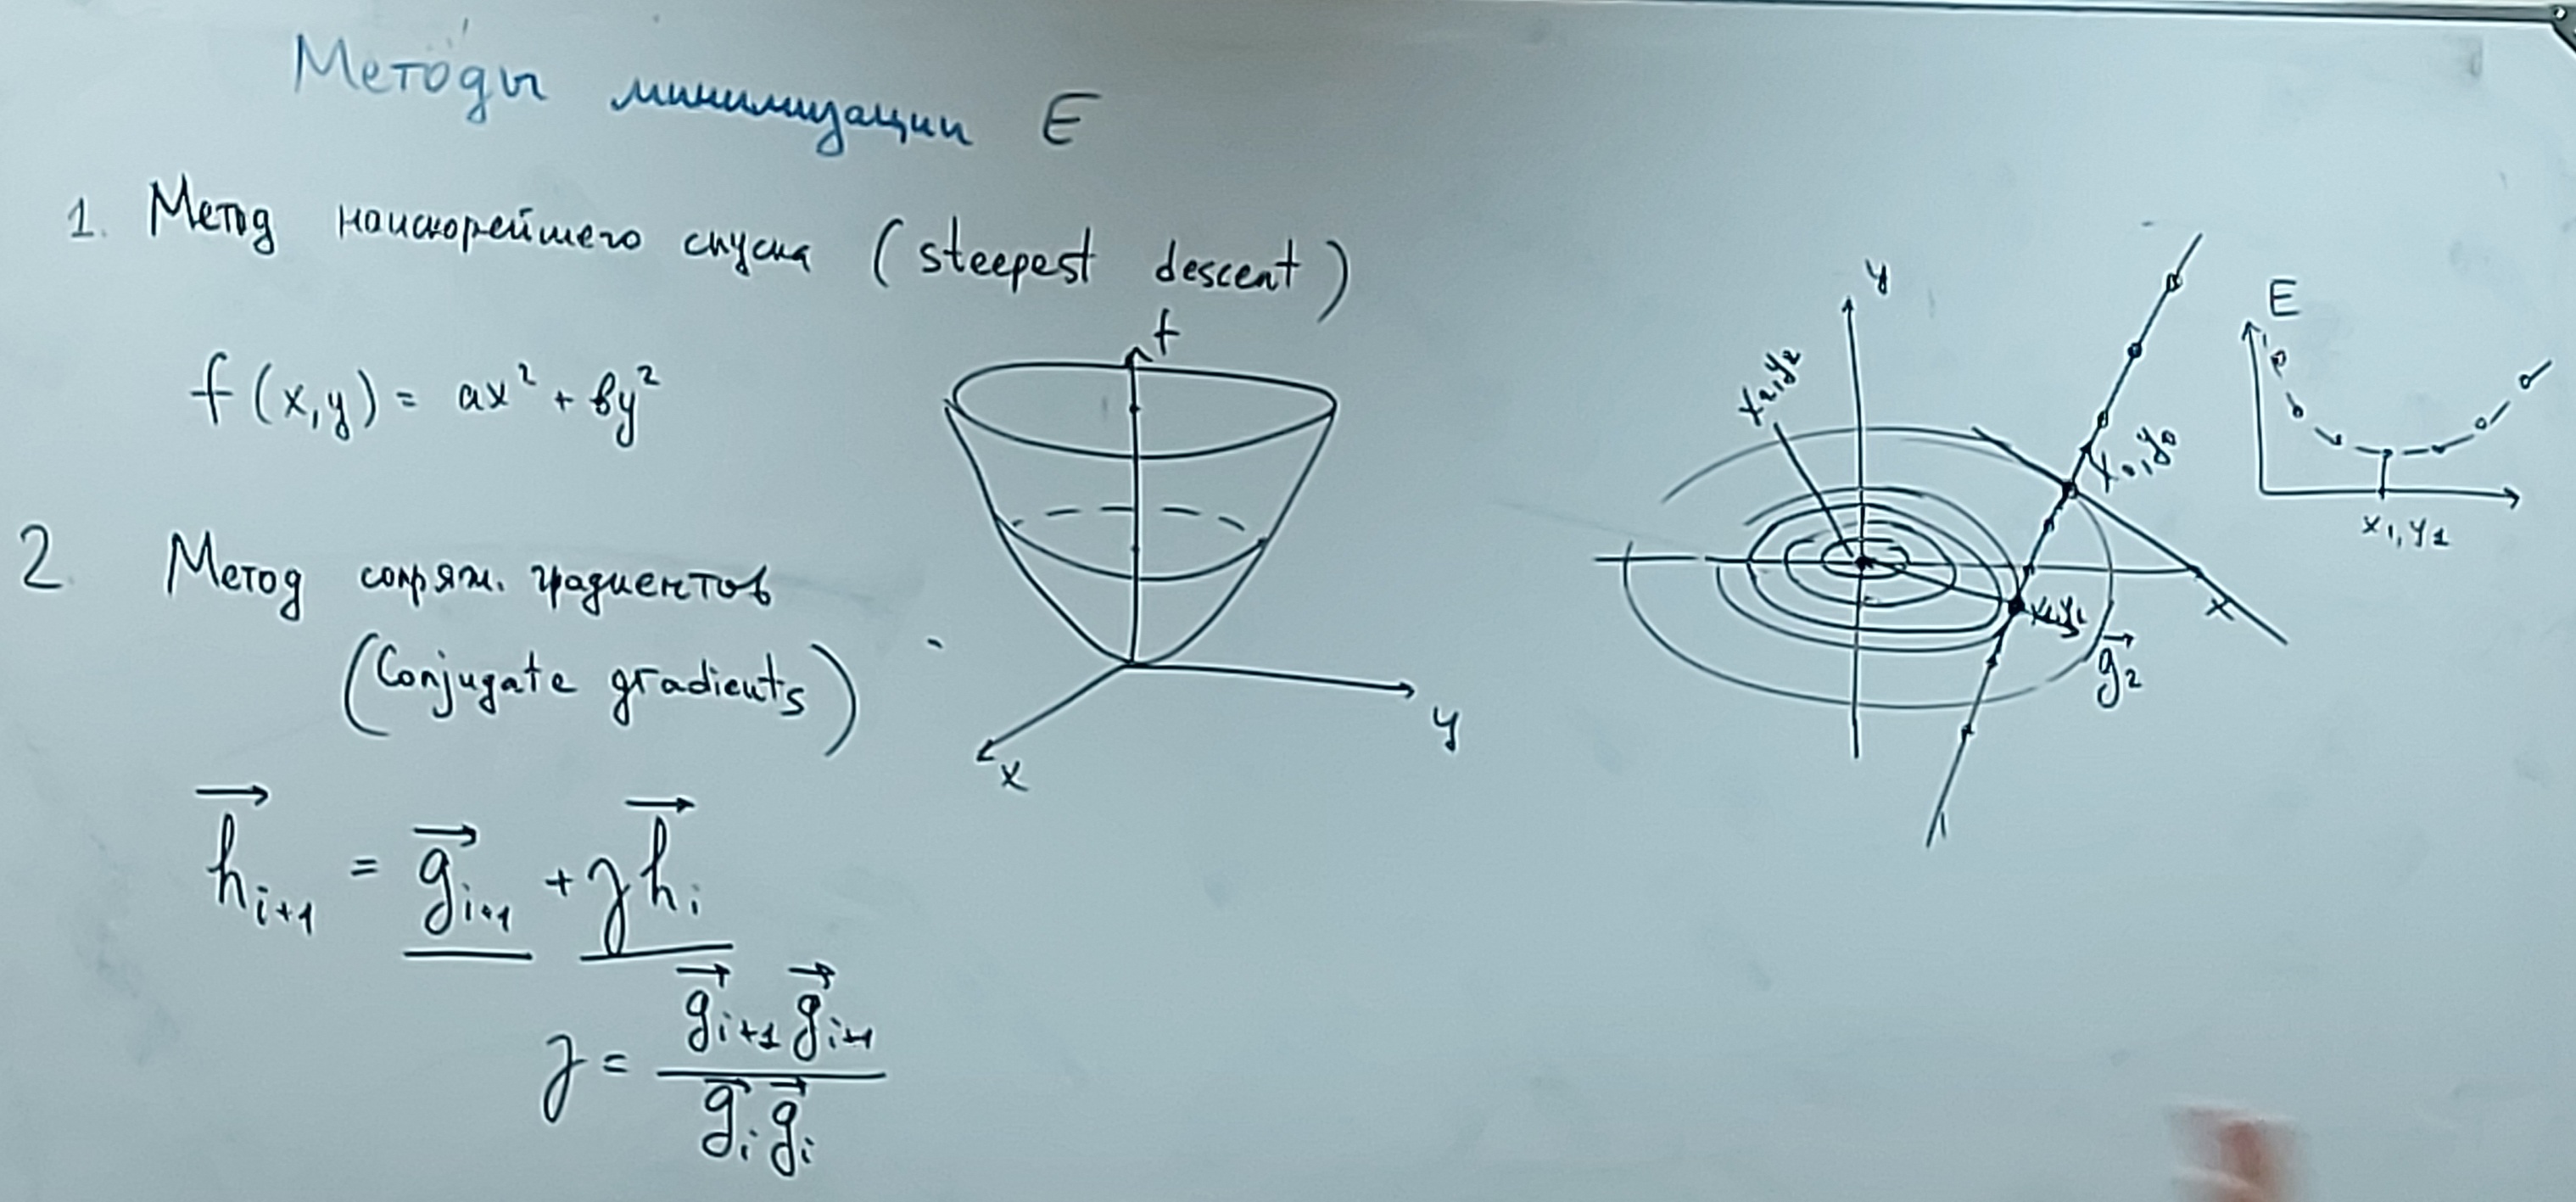 Методы минимизации E
1. Метод наискорейшего спуска (steepest descent)
f(x,y) = ax² + by²
f
y
x
2. Метод сопряж. градиентов
(Conjugate gradients)
h⃗ᵢ₊₁ = g⃗ᵢ₊₁ + γh⃗ᵢ
γ = g⃗ᵢ₊₁ g⃗ᵢ₊₁ / g⃗ᵢ g⃗ᵢ
y
x₂,y₂
x₀,y₀
x₁,y₁
x
g⃗₂
E
x₁,y₁